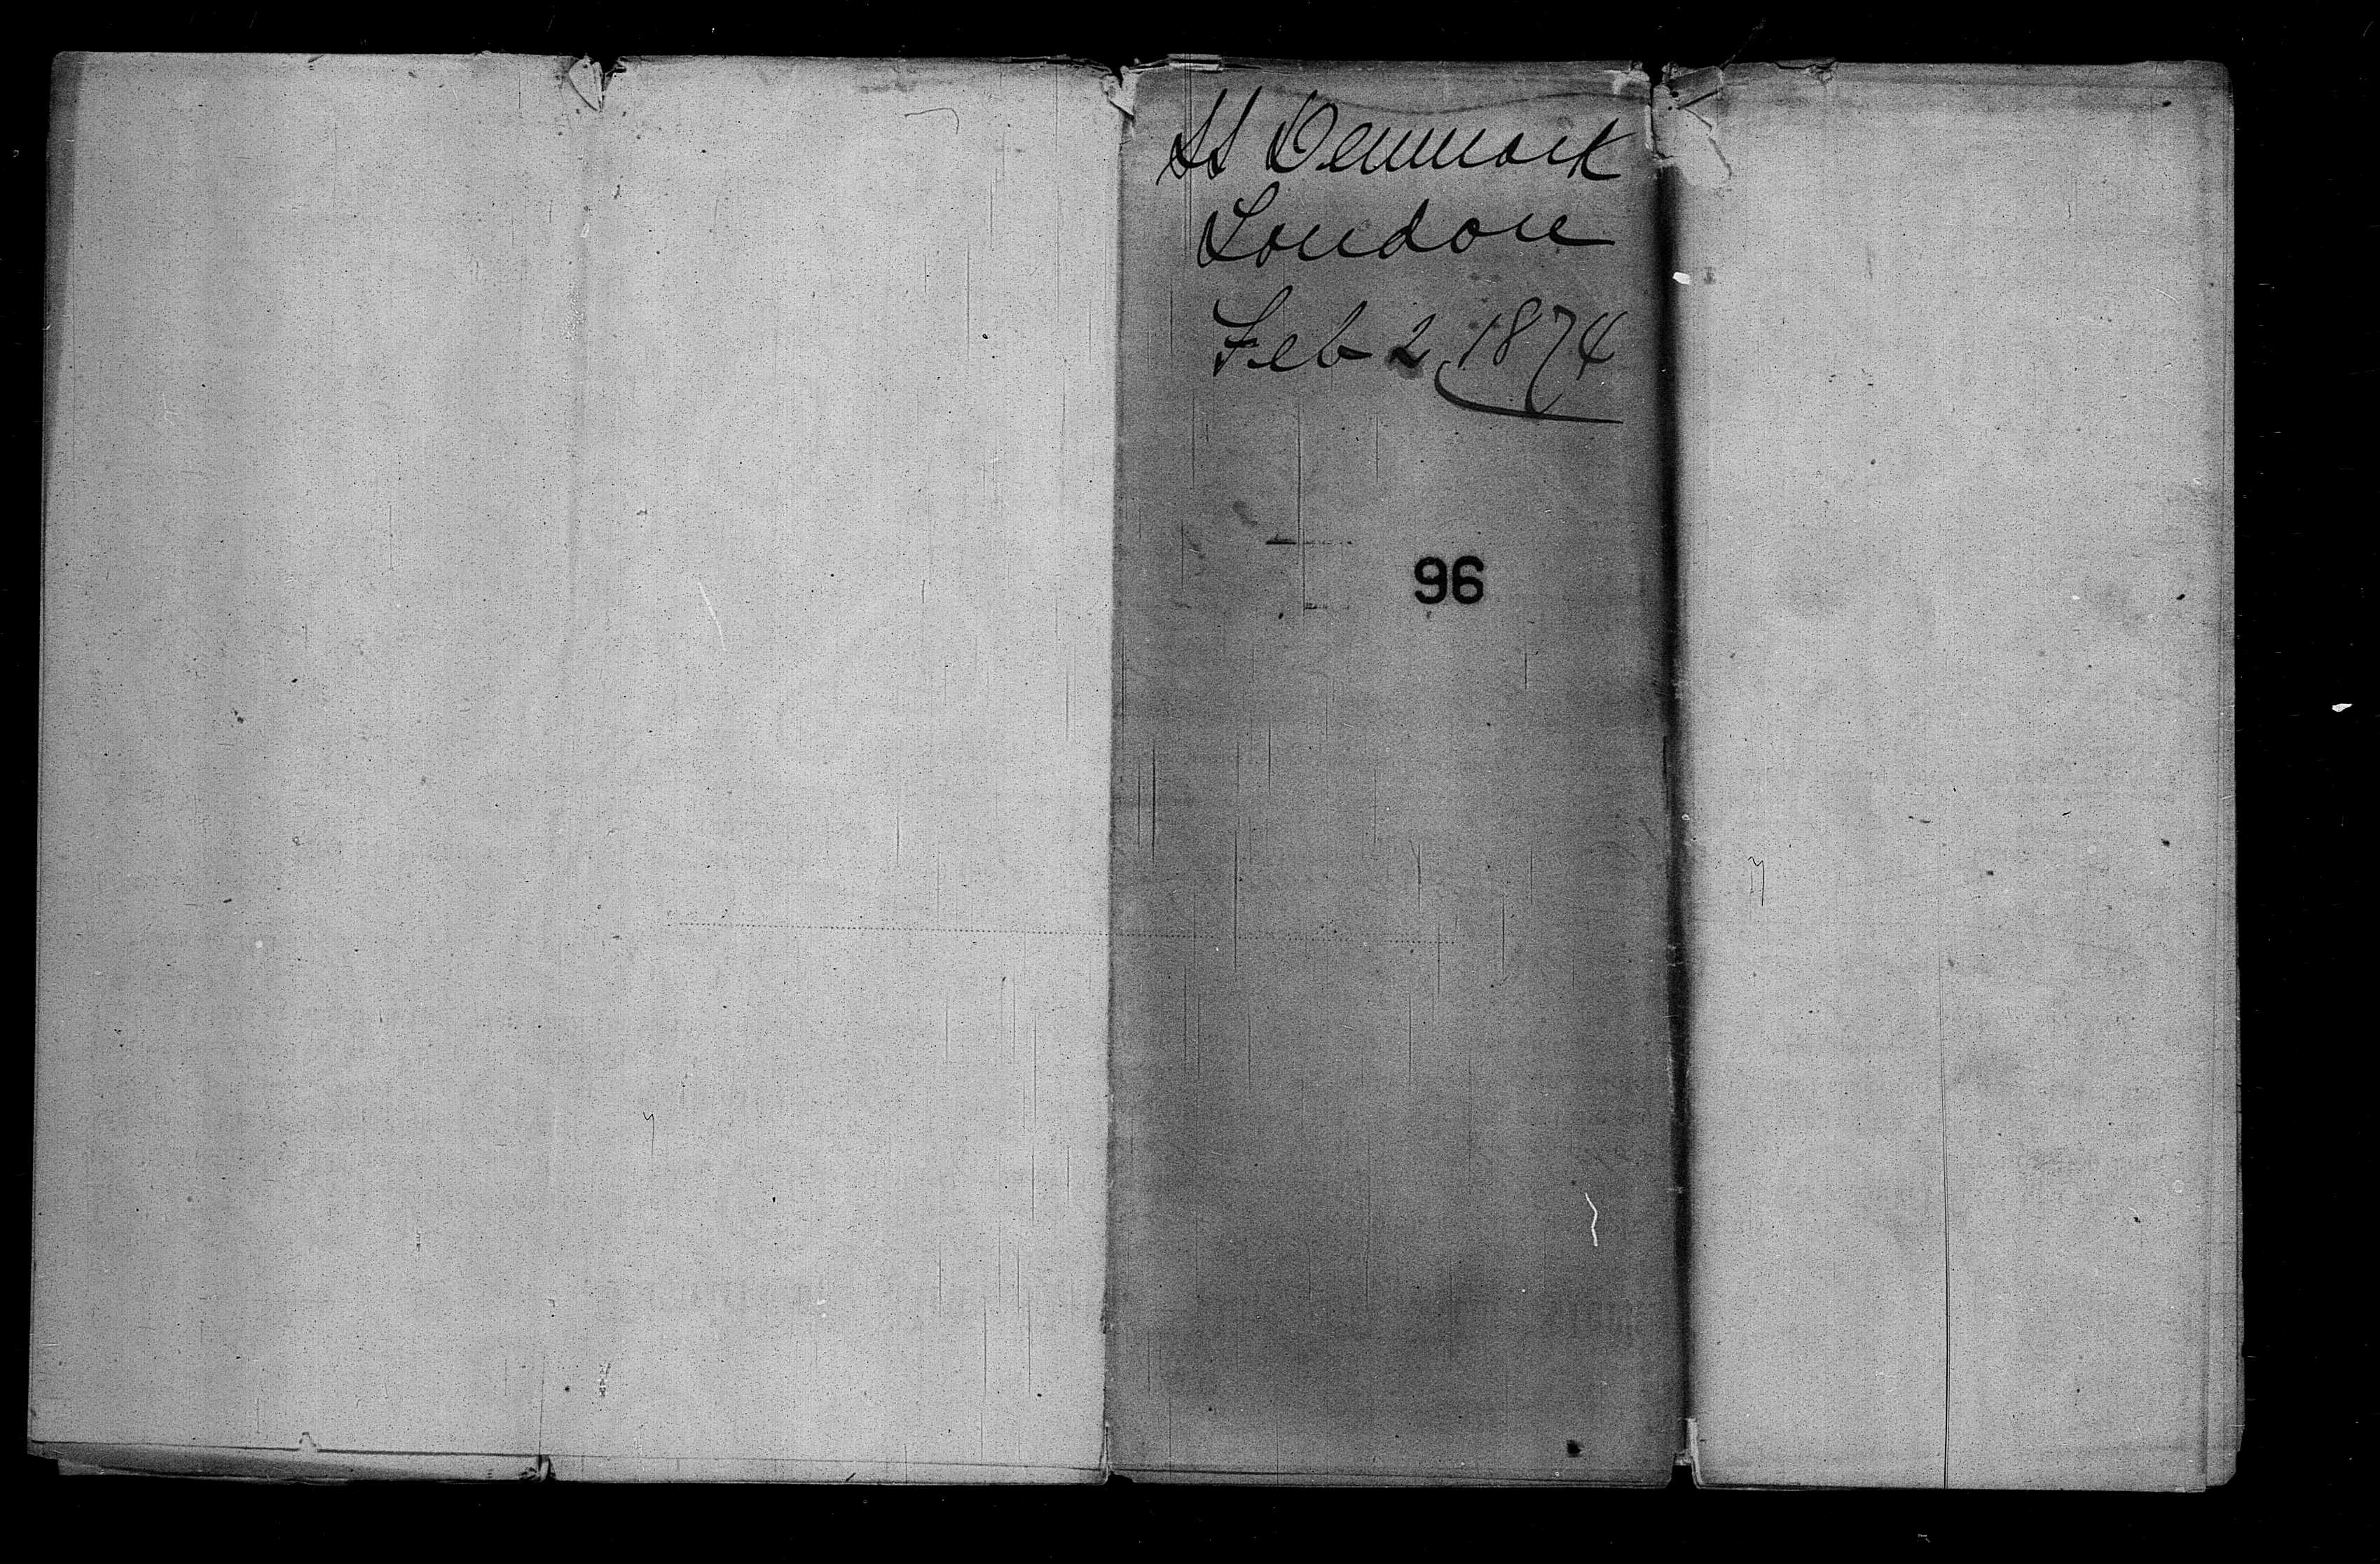 SS Denmark
London
Feb 2 1874
96